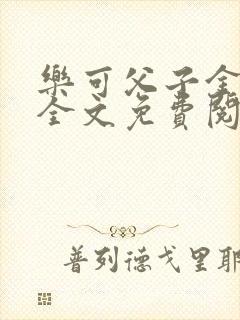 樂可父子全
全文免費閱
普列德戈里耶